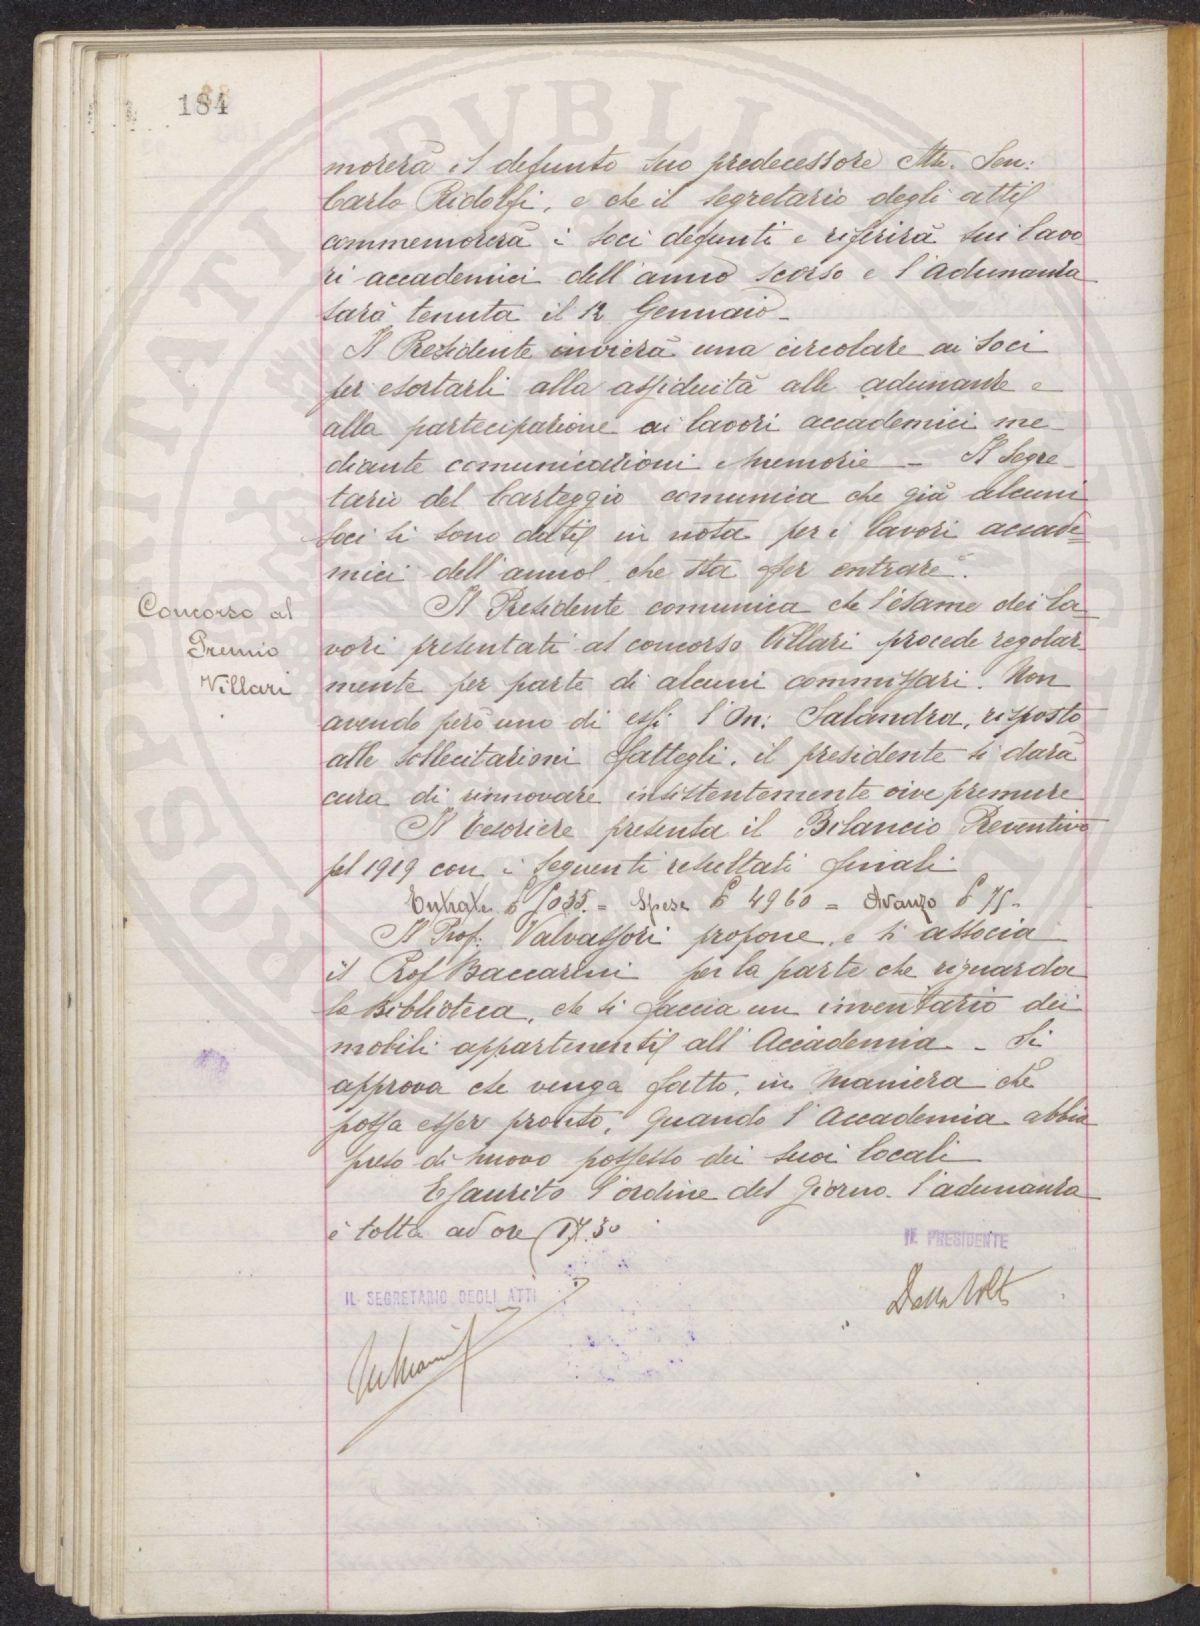 184
morerà il defunto suo predecessore March. Sen:
Carlo Ridolfi, e che il segretario degli atti
commemorerà i soci defunti e riferirà sui lavo
ri accademici dell'anno scorso e l'adunanza
sarà tenuta il 12 Gennaio_
Il Presidente invierà una circolare ai soci
per esortarli alla assiduità alle adunanze e
alla partecipazione ai lavori accademici me_
diante comunicazioni e Memorie_ Il Segre_
tario del Carteggio comunica che già alcuni
soci si sono dati in nota per i lavori accade=
mici dell'anno che sta per entrare.
Concorso al
Premio
Villari
Il Presidente comunica che l'esame dei la_
vori presentati al concorso Villari procede regolar_
mente per parte di alcuni commissari. Non
avendo però uno di essi l'On: Salandra, risposto
alle sollecitazioni fattegli, il presidente si darà
cura di rinnovare insistentemente vive premure
Il Tesoriere presenta il Bilancio Preventivo
pel 1919 con i seguenti resultati finali
Entrate £ 5035. = Spese £ 4960 = Avanzo £ 75_
Il Prof: Valvassori propone, e si associa
il Prof Baccarini per la parte che riguarda
la Biblioteca, che si faccia un inventario dei
mobili appartenenti all'Accademia_ Si
approva che venga fatto, in maniera che
possa esser pronto, quando l'Accademia abbia
preso di nuovo possesso dei suoi locali
Esaurito l'ordine del Giorno l'adunanza
è tolta ad ore 17.30
IL PRESIDENTE
Dalla Volta
IL SEGRETARIO DEGLI ATTI